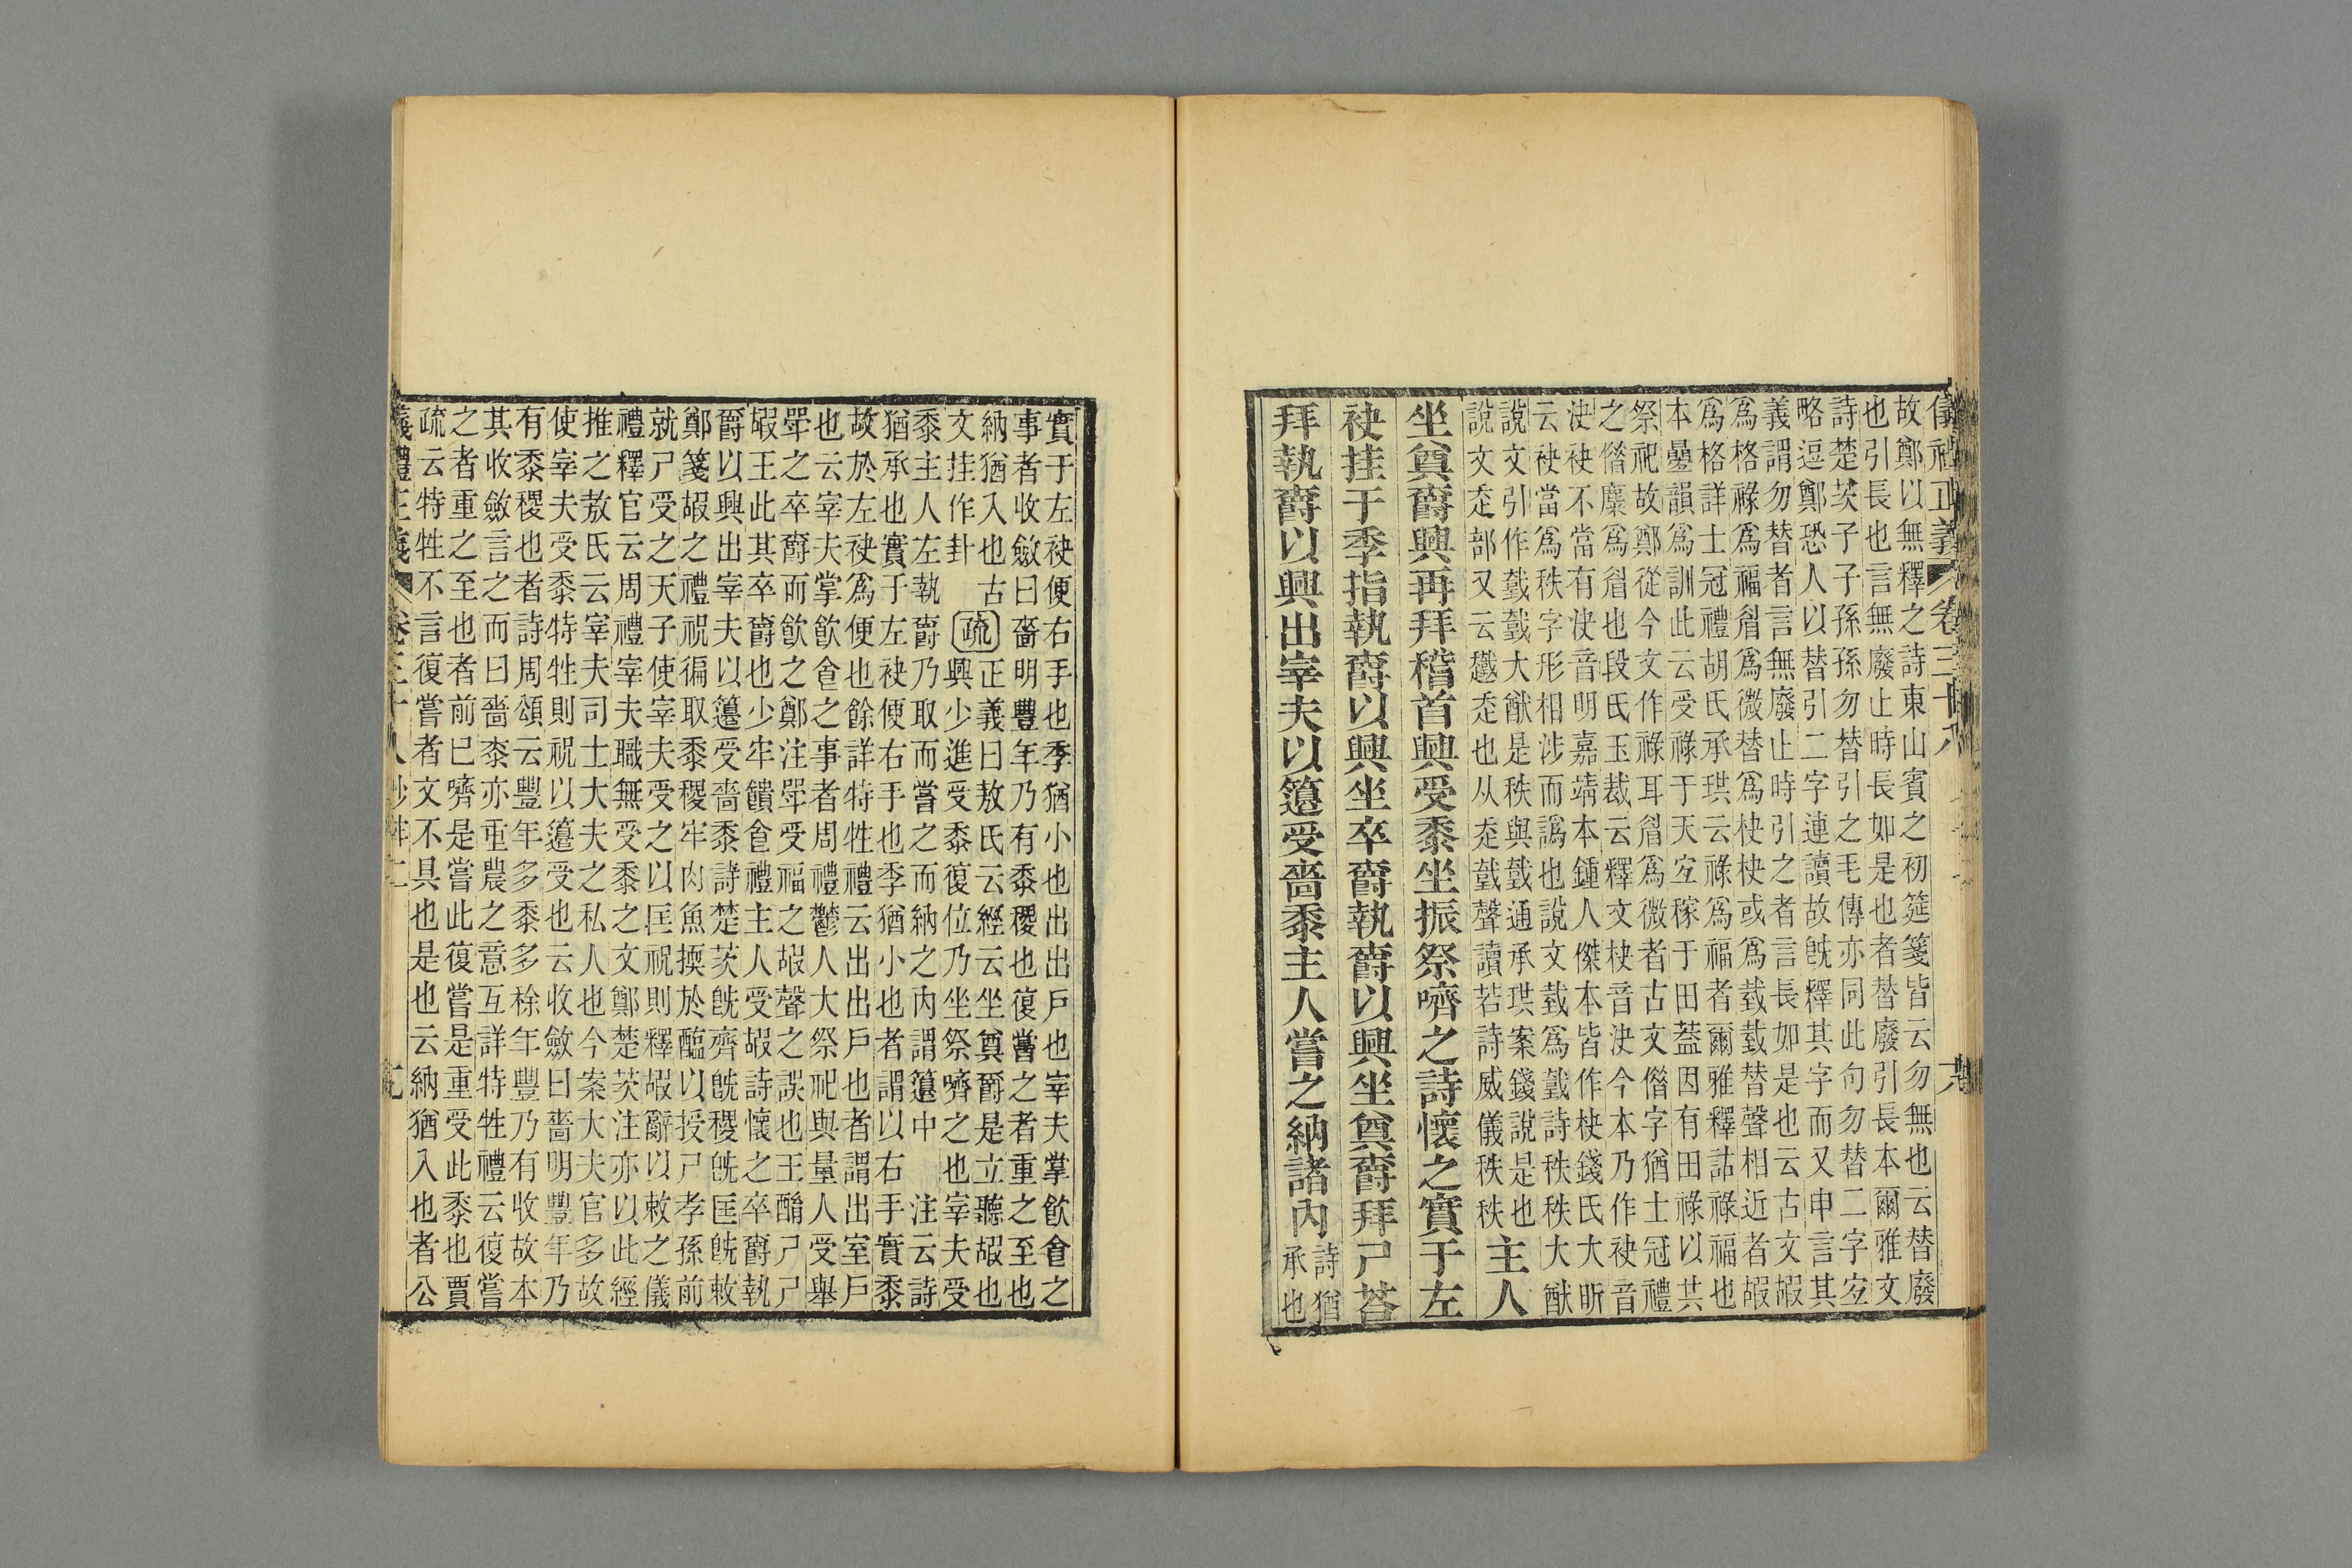 儀禮正義 卷三十八
故鄭以無釋之詩東山賓之初筵箋皆云勿無也云替廢
也引長也言無廢止時長如是也者替廢引長本爾雅文
詩楚茨子子孫孫勿替引之毛傳亦同此句勿替二字㝎
略逗鄭恐人以替引二字連讀故旣釋其字而又申言其
義謂勿替者言無廢止時引之者言長如是也云古文嘏
爲格祿爲福眉爲微替爲枤枤或爲臷臷替聲相近者嘏
爲格詳士冠禮胡氏承珙云祿爲福者爾雅釋詁祿福也
本疊韻爲訓此云受祿于天宜稼于田蓋因有田祿以共
祭祀故鄭從今文作祿耳眉爲微者古文僭字猶士冠禮
之僭麋爲眉也段氏玉裁云釋文枤音決今本乃作袂音
決袂不當有決音明嘉靖本鍾人傑本皆作枤錢氏大昕
云袂當爲秩字形相涉而譌也說文臷爲䟫詩秩秩大猷
說文引作䟫䟫大猷是秩與䟫通承珙案錢說是也
說文走部又云走也从走䟫聲讀若詩威儀秩秩主人
坐奠爵興再拜稽首興受黍坐振祭嚌之詩懷之實于左
袂挂于季指執爵以興坐卒爵執爵以興坐奠爵拜尸荅
拜執爵以興出宰夫以籩受嗇黍主人嘗之納諸內詩猶
承也
實于左袂便右手也季猶小也出出戶也宰夫掌飮食之
事者收斂曰嗇明豐年乃有黍稷也復嘗之者重之至也
納猶入也古文挂作卦
疏正義曰敖氏云經云坐奠爵是立聽嘏也
興少進受黍復位乃坐祭嚌之也宰夫受
黍主人左執爵乃取而嘗之而納之內謂籩中 注云詩
猶承也實于左袂便右手也季猶小也者謂以右手實黍
故於左袂爲便也餘詳特牲禮云出出戶也者謂出室戶
也云宰夫掌飮食之事者周禮鬱人大祭祀與量人受舉
斝之卒爵而飮之鄭注斝受福之嘏聲之誤也王酳尸尸
嘏王此其卒爵也少牢饋食禮主人受嘏詩懷之卒爵執
爵以興出宰夫以籩受嗇黍詩楚茨旣齊旣稷旣匡旣敕
鄭箋嘏之禮祝徧取黍稷牢肉魚擩於醢以授尸孝孫前
就尸受之天子使宰夫受之以匡祝則釋嘏辭以敕之儀
禮釋官云周禮宰夫職無受黍之文鄭楚茨注亦以此經
推之敖氏云宰夫司士大夫之私人也今案大夫官多故
使宰夫受黍特牲則祝以籩受也云收斂曰嗇明豐年乃
有黍稷也者詩周頌云豐年多黍多稌年豐乃有收故本
其收斂言之而曰嗇黍亦重農之意互詳特牲禮云復嘗
之者重之至也者前已嚌是嘗此復嘗是重受此黍也賈
疏云特牲不言復嘗者文不具也是也云納猶入也者公
儀禮正義 卷三十八